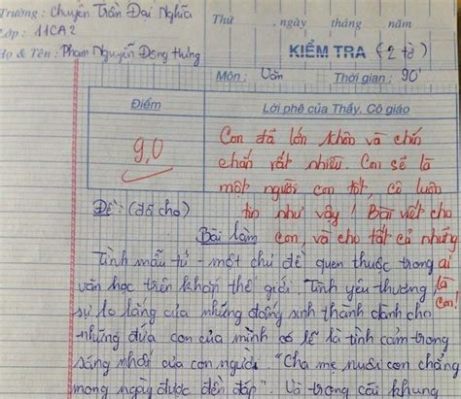 Trường: Chuyên Trần Đại Nghĩa
Thứ ngày tháng năm
Lớp: 11CA2
Họ & Tên: Phạm Nguyễn Đông Hưng
KIỂM TRA (2 tờ)
Môn: Văn Thời gian: 90'
Điểm
Lời phê của Thầy, Cô giáo
9,0
Con đã lớn khôn và chín
chắn rất nhiều. Con sẽ là
một người con tốt, cô luôn
tin như vậy! Bài viết cho
con, và cho tất cả những
ai
là
con!
Đề: (đã cho)
Bài làm
Tình mẫu tử - một chủ đề quen thuộc trong
văn học trên khắp thế giới. Tình yêu thương,
sự lo lắng của những đấng sinh thành dành cho
những đứa con của mình có lẽ là tình cảm trong
sáng nhất của con người. "Cha mẹ nuôi con chẳng
mong ngày được đền đáp". Và trong cái khung